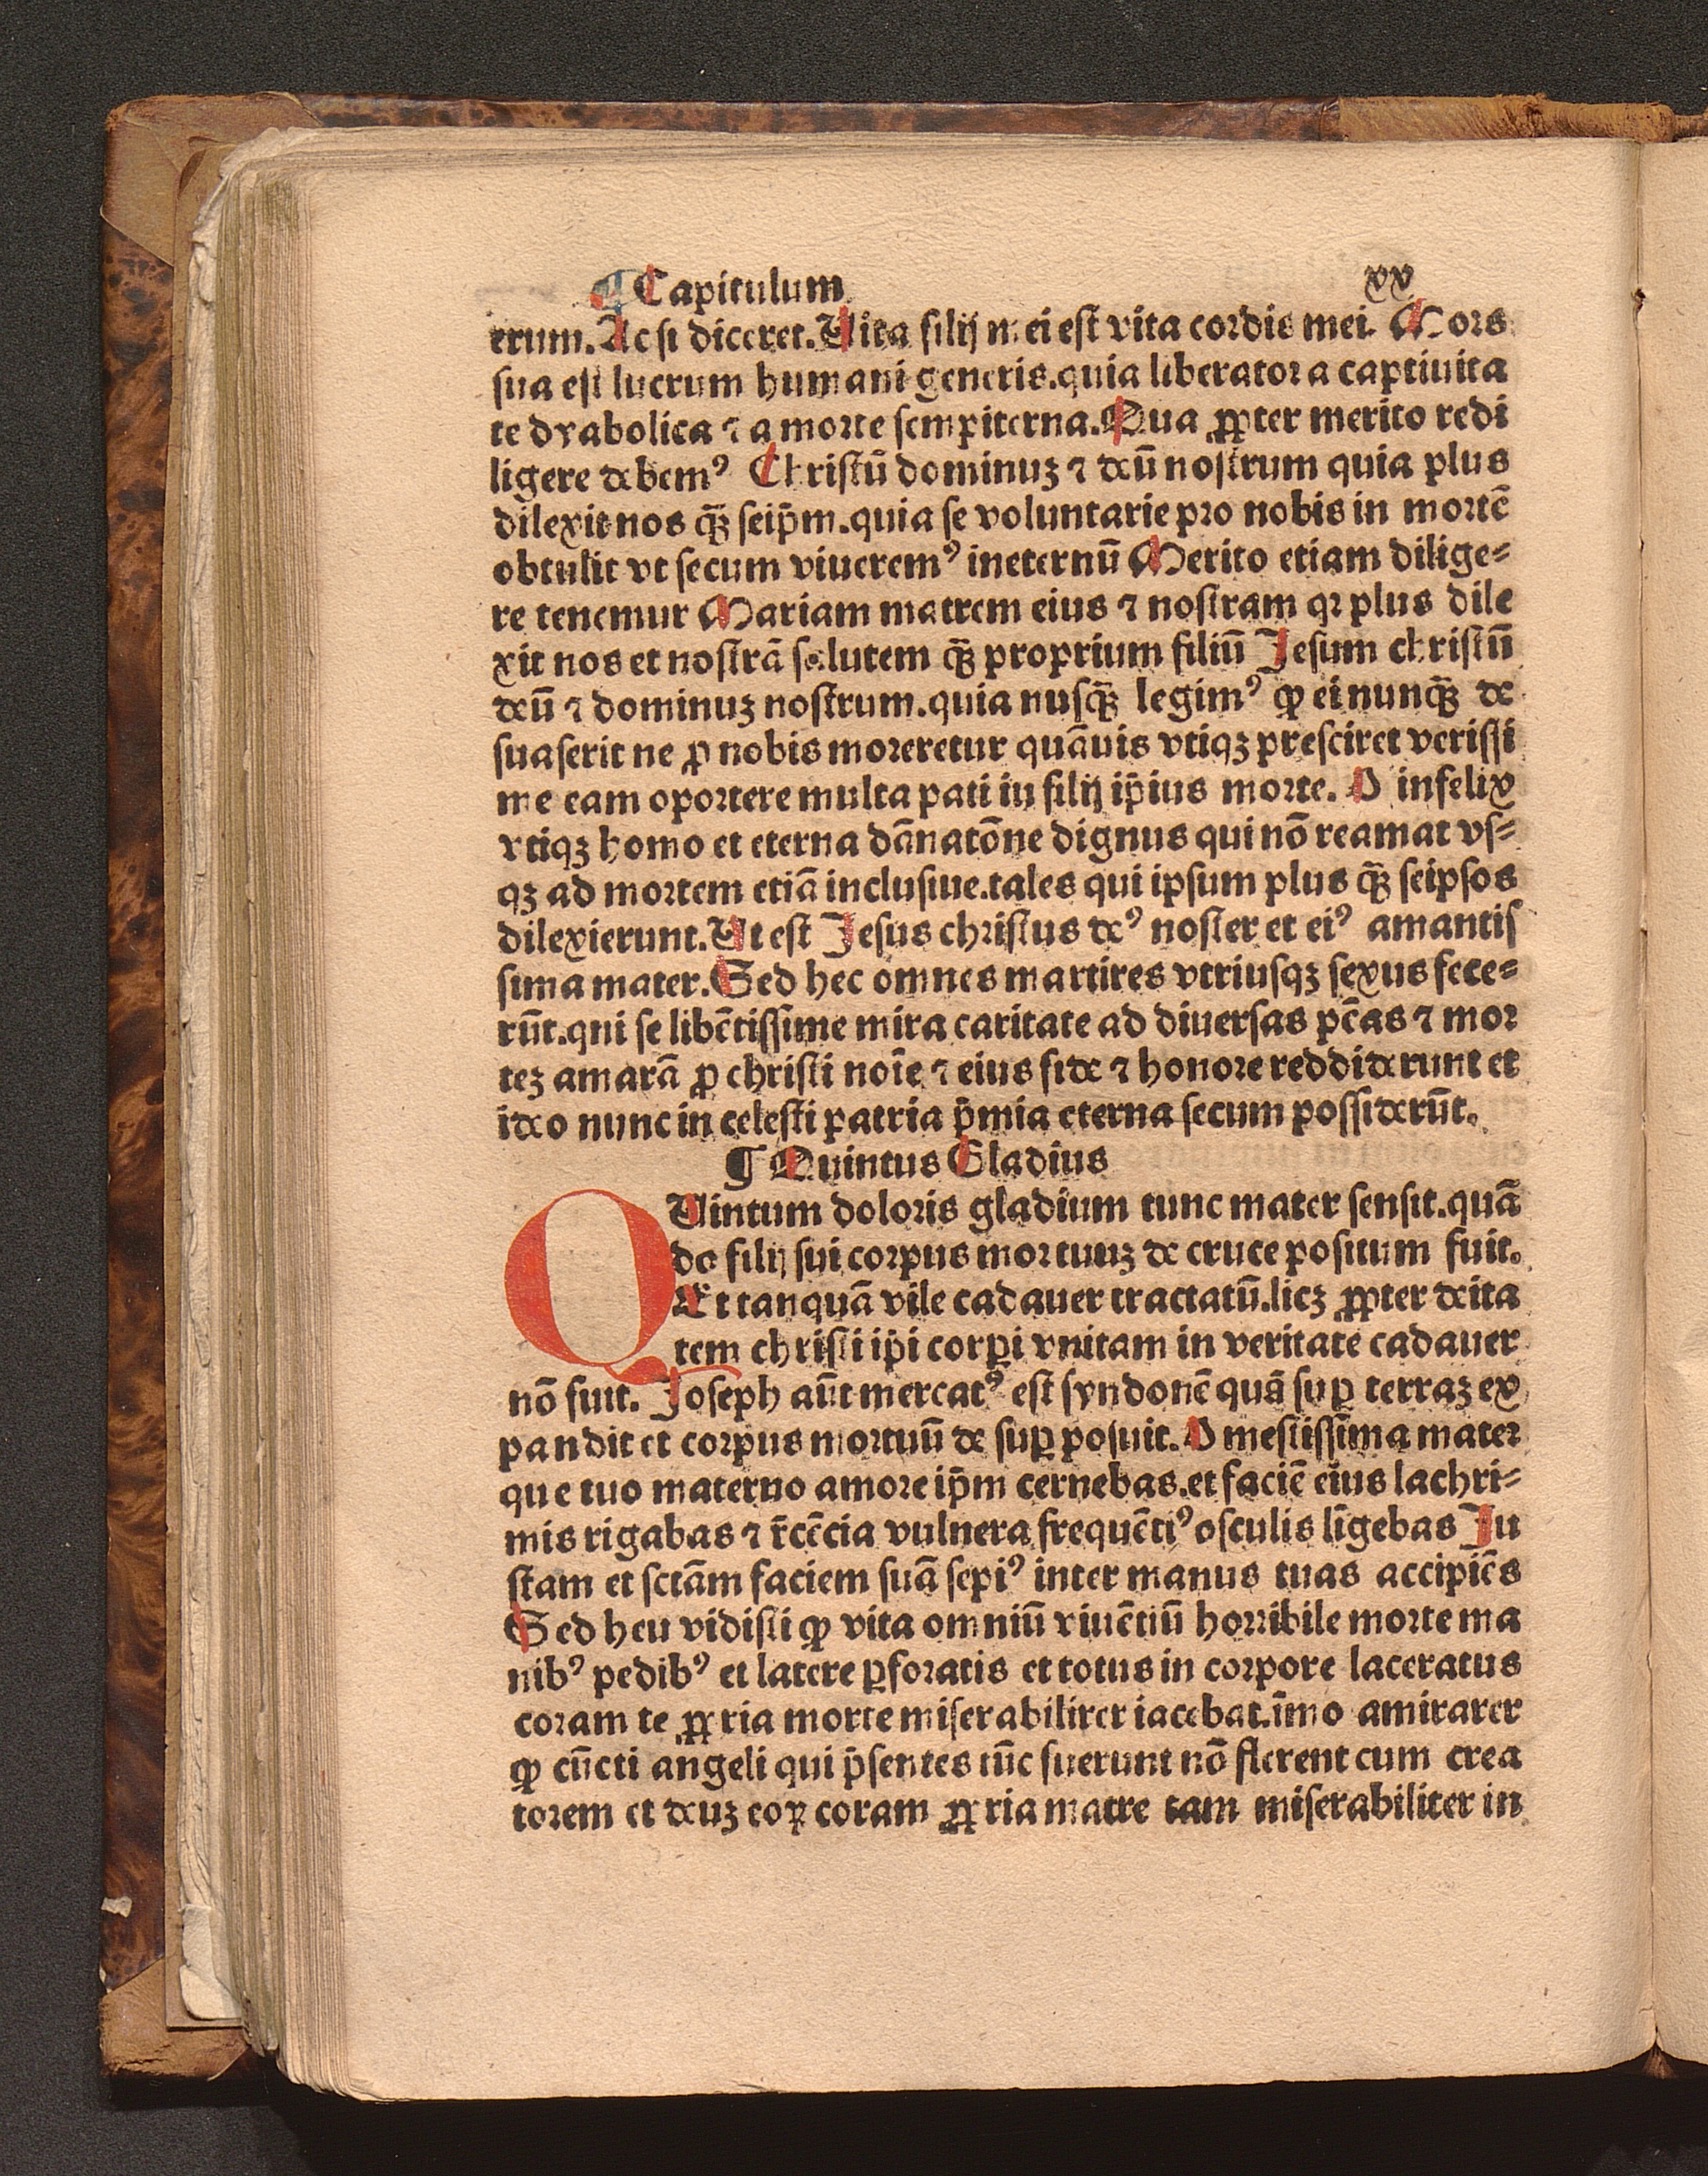 ¶ Capitulum xv
erum. Ac si diceret. Uita filij mei est vita cordis mei. Mors
sua est lucrum humani generis. quia liberator a captiuita
te dyabolica ⁊ a morte sempiterna. Qua ꝓpter merito redi
ligere debemꝰ Christū dominuꝫ ⁊ deū nostrum quia plus
dilexit nos qꝫ̄ seip̄m. quia se voluntarie pro nobis in mortē
obtulit vt secum viueremꝰ ineternū Merito etiam dilige⸗
re tenemur Mariam matrem eius ⁊ nostram qꝛ plus dile
xit nos et nostrā salutem qꝫ̄ proprium filiū Jesum christū
deū ⁊ dominuꝫ nostrum. quia nusqꝫ̄ legimꝰ ꝙ ei nunqꝫ̄ de
suaserit ne ꝓ nobis moreretur quāuis vtiqꝫ presciret verissi
me eam oportere multa pati iu filij ip̄ius morte. O infelix
vtiqꝫ homo et eterna dānatōne dignus qui nō reamat vs⸗
qꝫ ad mortem etiā inclusiue. tales qui ipsum plus qꝫ̄ seipsos
dilexierunt. Ut est Jesus christus deꝰ noster et eiꝰ amantis
sima mater. Sed hec omnes martires vtriusqꝫ sexus fece⸗
rūt. qui se libētissime mira caritate ad diuersas pēas ⁊ mor
teꝫ amarā ꝓ christi noīe ⁊ eius fide ⁊ honore reddiderunt et
ideo nunc in celesti patria p̄mia eterna secum possiderūt.
¶ Quintus Gladius
QUintum doloris gladium tunc mater sensit. quā
do filij sui corpus mortuuꝫ de cruce positum fuit.
Et tanquā vile cadauer tractatū. licꝫ ꝓpter deita
tem christi ip̄i corꝑi vnitam in veritate cadauer
nō fuit. Joseph aūt mercatꝰ est syndonē quā suꝑ terraꝫ ex
pandit et corpus mortuū de suꝑ posuit. O mestissima mater
que tuo materno amore ip̄m cernebas. et faciē eius lachri⸗
mis rigabas ⁊ r̄cēcia vulnera frequētiꝰ osculis līgebas Ju
stam et sctām faciem suā sepiꝰ inter manus tuas accipiēs
Sed heu vidisti ꝙ vita omniū viuētiū horribile morte ma
nibꝰ pedibꝰ et latere ꝑforatis et totus in corpore laceratus
coram te ꝓpria morte miserabiliter iacebat. īmo amirarer
ꝙ cūcti angeli qui p̄sentes tūc fuerunt nō flerent cum crea
torem et deuꝫ eoꝝ coram ꝓpria matre tam miserabiliter in